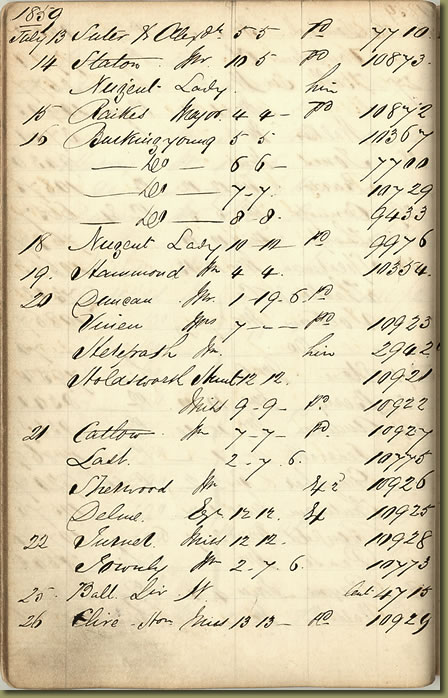 1859
July 13 Suter & Alexdr 5 5 Pd 7710
14 Staton Mr. 10 5 Pd 10873
Nugent Lady him
15 Raikes Major 4 4 - Pd 10872
16 Buckingyoung 5 5 10367
— Do — 6 6 - 7700
— Do — 7-7. 10729
— Do — 8-8. 9433
18 Nugent Lady 10-10- Pd 9976
19. Hammond Mr 4 4. 10354
20 Duncan Mr. 1-19-6. Pd
Vinen Mrs 7 - - Pd 10923
Mr. him 2942
Holdsworth 12 12. 10921
Miss 9-9- Pd. 10922
21 Catlow Mr 7-7- Pd. 10927
Last. 2-7.6. 10775
Sherwood Mr 10926
Delme. Esqr 12 12. 10925
22 Turnel Miss 12 12. 10928
Mr 2-7.6 10773
25. Ball Sir W 4715
26 Clive Hon Miss 13 13 - Pd 10929